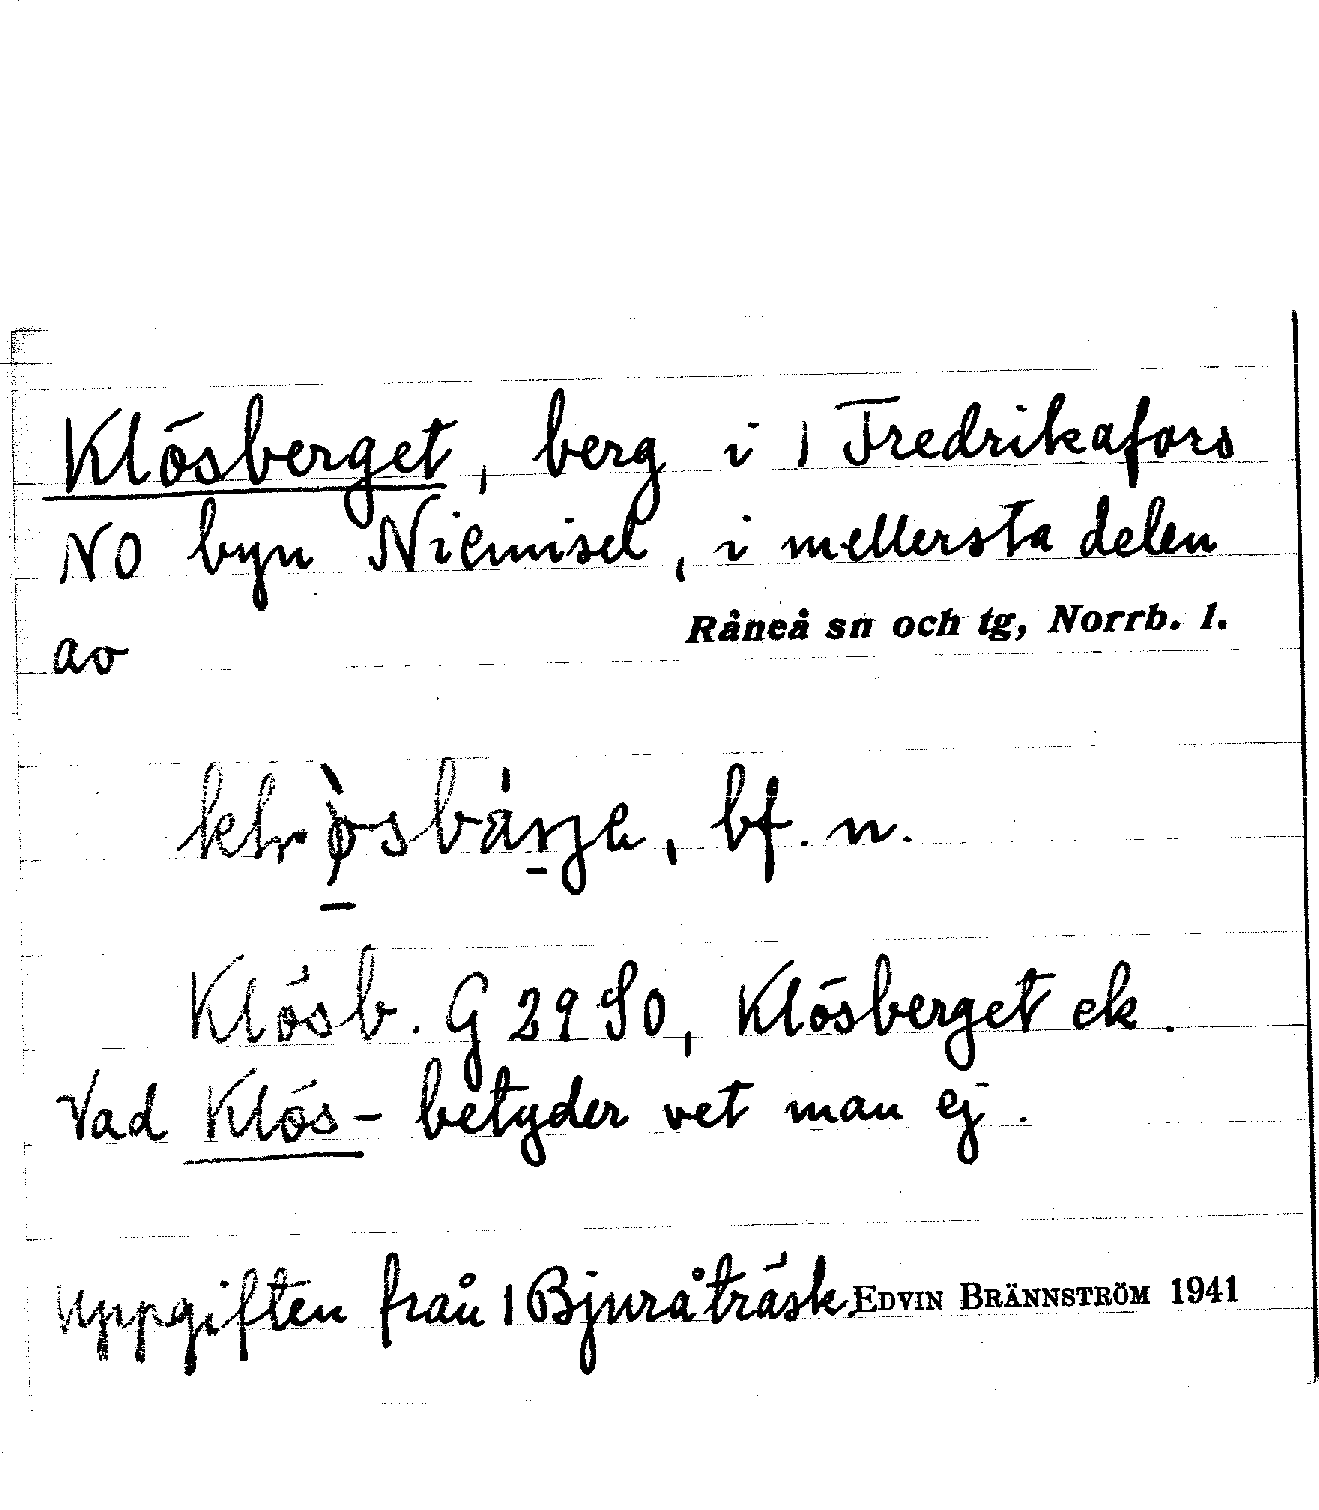 Klösberget, berg i 1 Fredrikafors
NO byn Niemisel, i mellersta delen
av Råneå sn och tg, Norrb. l.
bf. n.
Klösb. G 29 SO, Klösberget ek.
Vad Klös- betyder vet man ej.
Uppgiften från 1 Bjuråträsk. EDVIN BRÄNNSTRÖM 1941